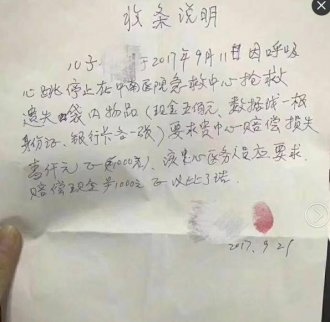 收条说明
儿子 于2017年9月11日因呼吸
心跳停止在中南医院急救中心抢救
遗失 袋内物品（现金五佰元、数据线一根
身份证、银行卡各一张）要求贵中心赔偿损失
壹仟元 1000元）、该中心医务人员应要求
赔偿现金 1000元 以此了结
2017.9.29